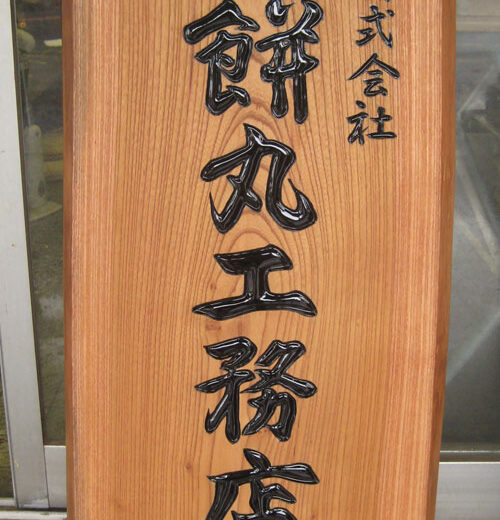 式会社
餅丸工務店